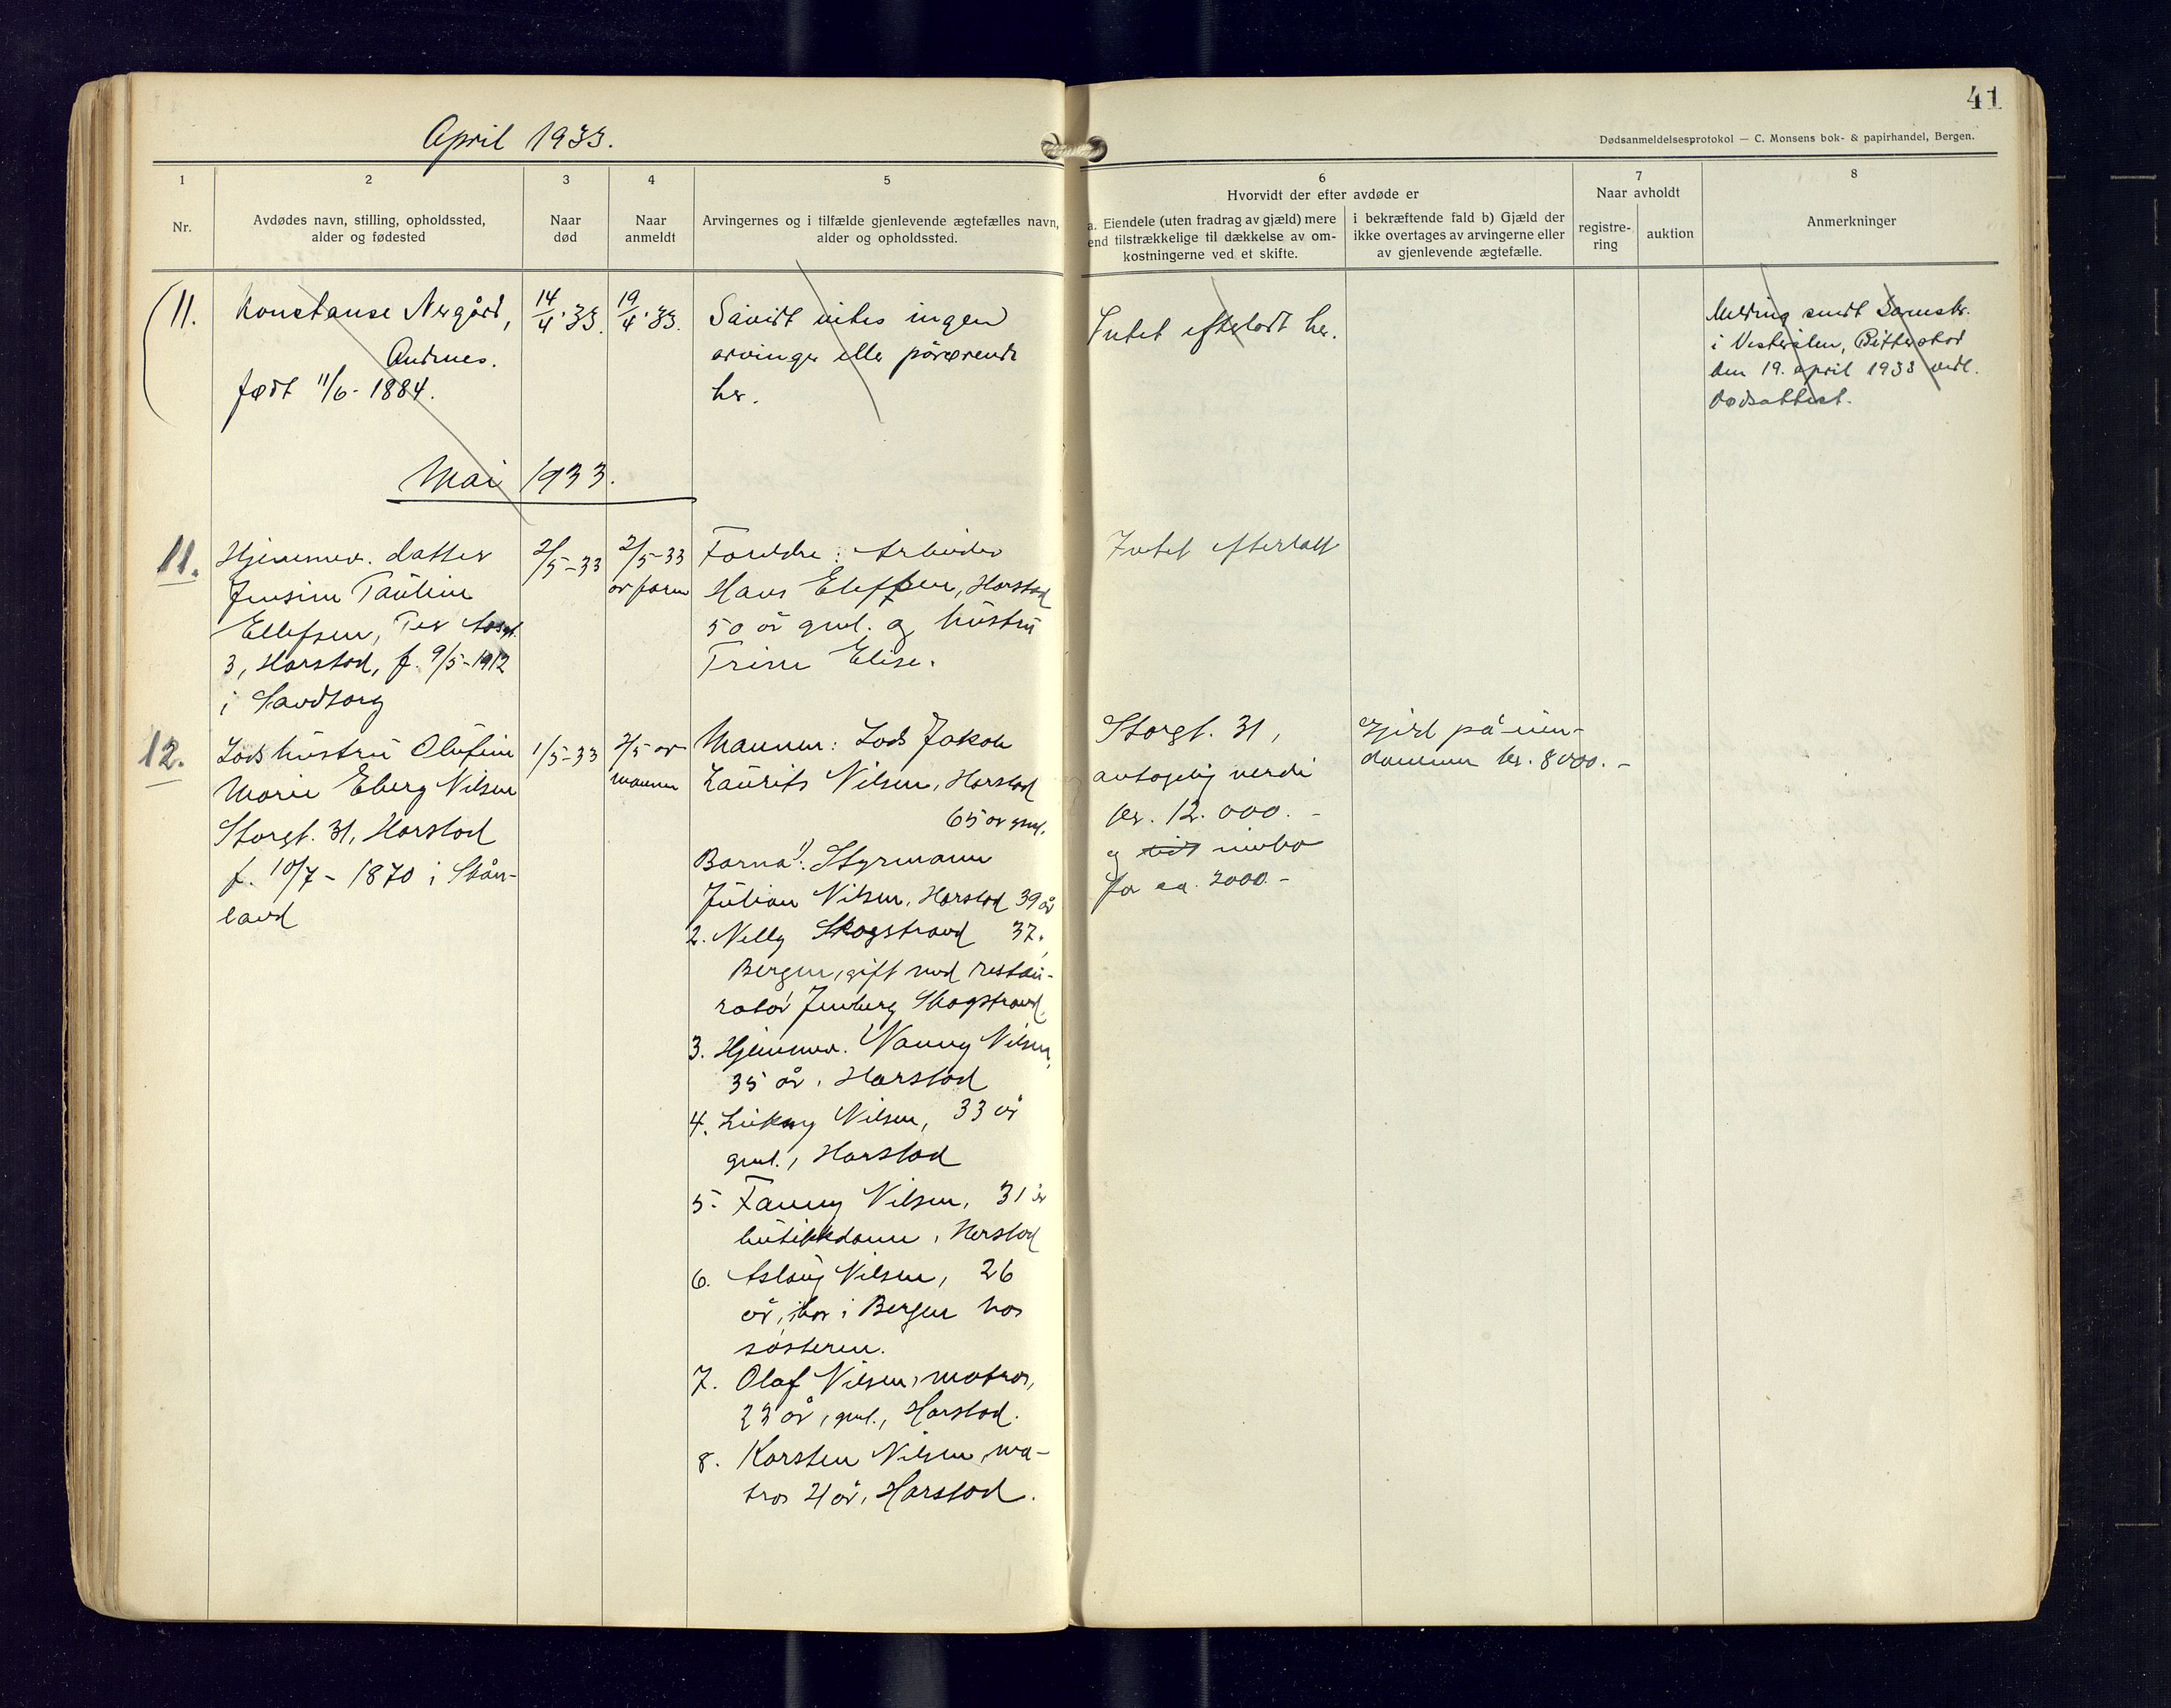 41
April 1933.
Dødsanmeldelsesprotokol — C. Monsens bok- & papirhandel, Bergen.
1
2
3
4
5
6
7
8
Nr.
Avdødes navn, stilling, opholdssted,
alder og fødested
Naar
død
Naar
anmeldt
Arvingernes og i tilfælde gjenlevende ægtefælles navn,
alder og opholdssted.
Hvorvidt der efter avdøde er
a. Eiendele (uten fradrag av gjæld) mere
end tilstrækkelige til dækkelse av om-
kostningerne ved et skifte.
i bekræftende fald b) Gjæld der
ikke overtages av arvingerne eller
av gjenlevende ægtefælle.
Naar avholdt
registre-
ring
auktion
Anmerkninger
11.
Konstanse Nergård,
Andenes.
født 11/6- 1884.
14/4·33.
19/4·33.
Såvidt vites ingen
arvinger eller pårørende
her.
Intet efterlatt her.
Melding sendt
i Vesterålen,
den 19. april 1933 vedl.
dødsattest.
Mai 1933.
11.
Hjemmev. datter
Jensine Pauline
Ellefsen,
3, Harstad, f. 9/5-1912
i Sandtorg
2/5-33
2/5-33
av faren
Foreldre: Arbeider
Hans Elefsen, Harstad
50 år gml. og hustru
Trine Elise.
Intet efterlatt
12.
Lods hustru Olufine
Marie Eberg Nilsen
Storgt. 31, Harstad
f. 10/7- 1870 i Skån-
land
1/5-33
2/5 av
mannen
Mannen: Lods Jakob
Laurits Nilsen, Harstad
65 år gml.
Barna 1: Styrmann
Julian Nilsen, Harstad 39 år
2. Nelly Skogstrand 37,
Bergen, gift med restau-
ratør Jenberg Skogstrand.
3. Hjemmev. Nanny Nilsen,
35 år, Harstad
4. Nilsen, 33 år
gml., Harstad
5. Fanny Nilsen, 31 år
butikkdame, Harstad
6. Aslaug Nilsen, 26
år, bor i Bergen hos
søsteren.
7. Olaf Nilsen, matros,
23 år, gml., Harstad.
8. Karsten Nilsen, ma-
tros 21 år, Harstad.
Storgt. 31,
antagelig verdi
kr. 12.000.-
og innbo
for ca. 2000.-
Gjeld på eien-
dommen kr. 8000.-